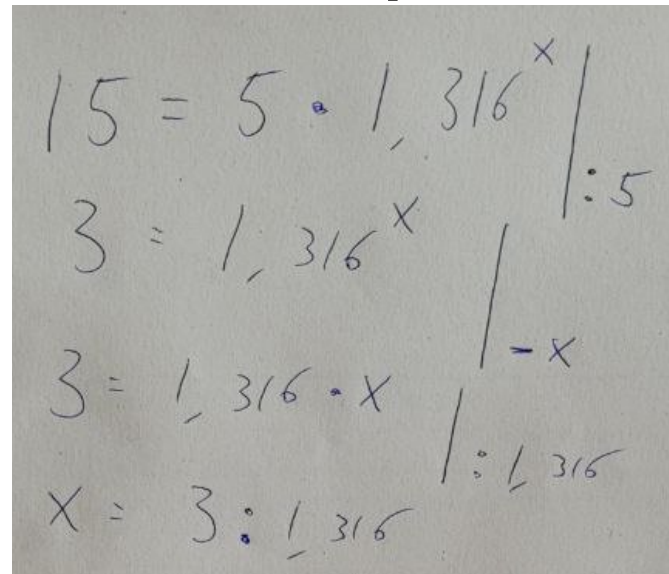 15 = 5 · 1,316^x | : 5
3 = 1,316^x | - x
3 = 1,316 · x | : 1,316
x = 3 : 1,316